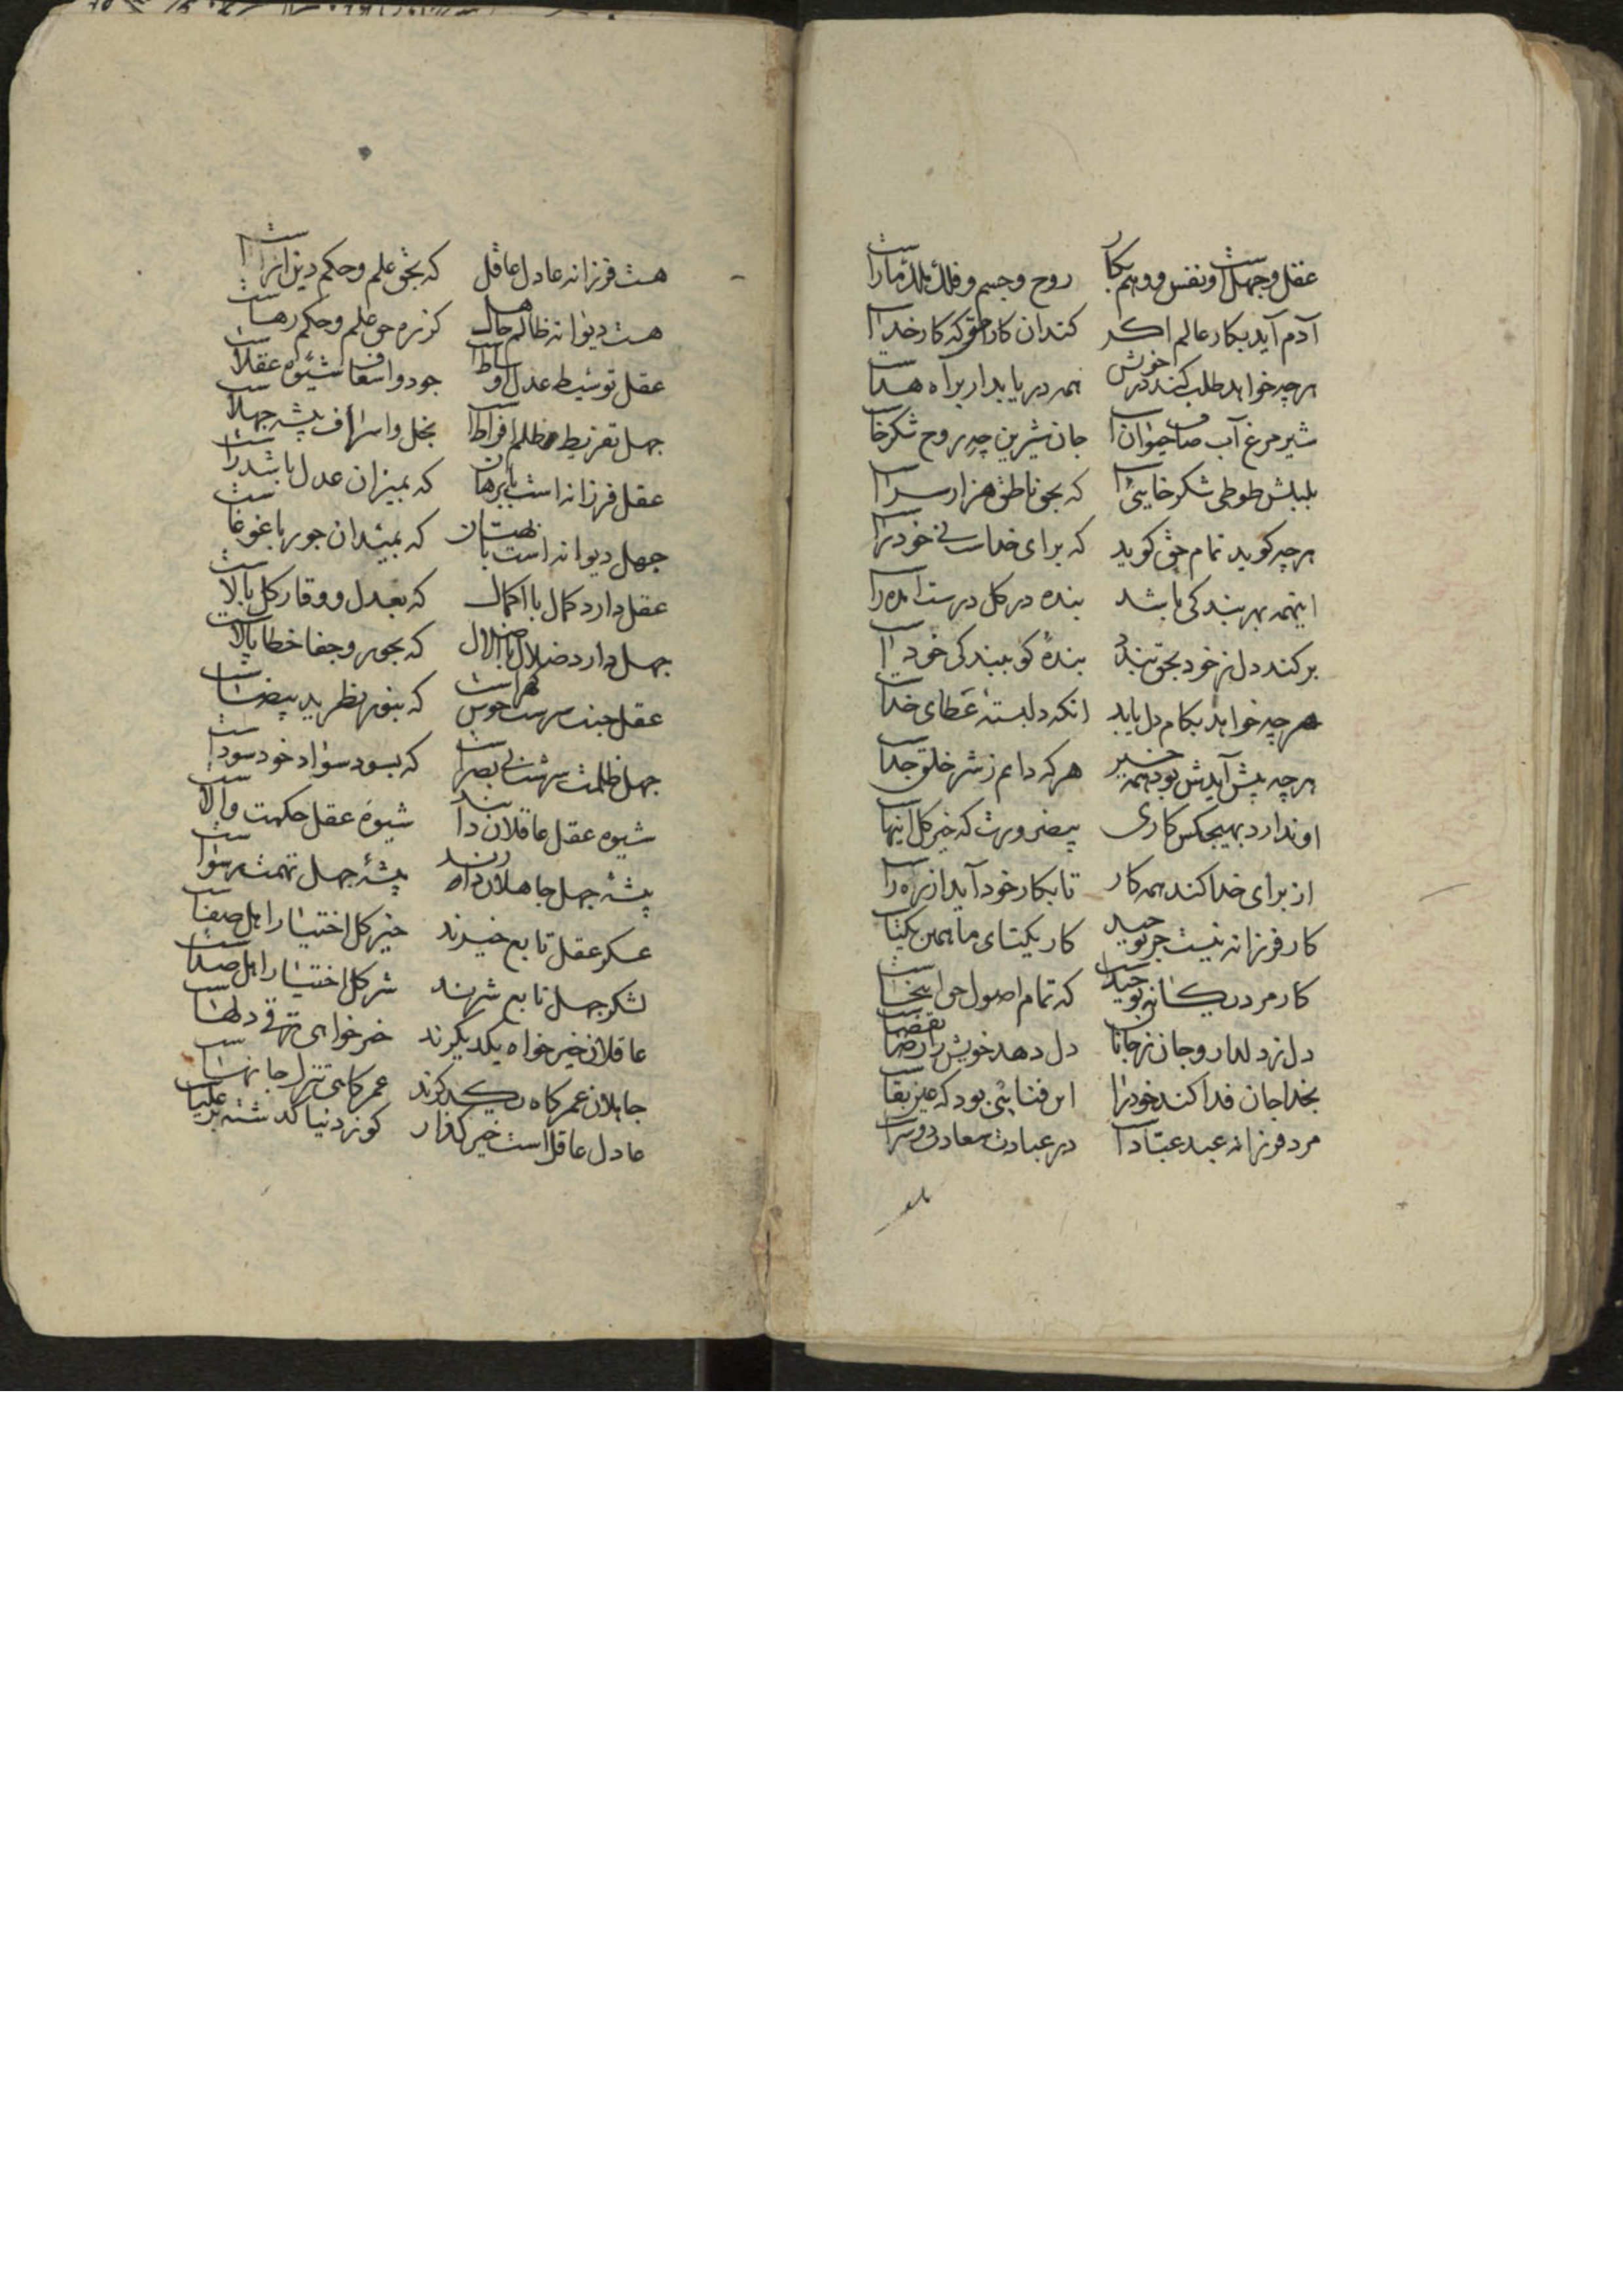 عقل و جهلست و نفس و وهم بکار روح و جسم و فلک ملک ما راست
آدم آید بکار عالم اکر کند آن کار حق که کار خداست
هرچه خواهد طلب کند در خویش همه دریابد ار براه هداست
شیر مرغ آب صاف حیوانست جان شیرین چه بروح شکرخاست
بلبلش طوطی شکرخاییست که بحق ناطق هزار سراست
هرچه کوید تمام حق کوید که برای خداست نی خود راست
اینهمه بهر بندکی باشد بنده در کل درست آمده راست
برکند دل ز خود بحق بندد بندهٔ کو ببندکی خود راست
هرچه خواهد بکام دل یابد انکه دلبستهٔ عطای خداست
هرچه پیش آیدش بود همه خیر هر که دایم ز شر خلق جداست
او ندارد بهیچکس کاری بیضرورت که خیر کل اینهاست
از برای خدا کند همه کار تا بکار خود آید از ره راست
کار فرزانه نیست جز توحید کار یکتای ما همین یکتاست
کار مرد یکانه توحیدست که تمام اصول حق اینجاست
دل ز دلدار و جان ز جانان دل دهد خویش را رضا بقضاست
بخدا جان فدا کند خود را این فنایی بود که عین بقاست
مرد فرزانه عبد عبادست در عبادت سعادت دو سراست
هست فرزانه عادل عاقل که بحق علم و حکم دین آراست
هست دیوانه ظالم جاهل کز ره حق علم و حکم رهاست
عقل توسیط عدل اوساطست جود و اسعاف شیوه عقلاست
جهل تفریط و ظلم افراطست بخل و اسراف پیشه جهلاست
عقل فرزانه است با برهان که بمیزان عدل باشد راست
جهل دیوانه است با بهتان که بمیدان جور با غوغاست
عقل دارد کمال با اکمال که بعدل و وقار کل بالاست
جهل دارد ضلال با اضلال که بجور و جفا خطا پالاست
عقل جنت سرشت حوراست که بنور نظر ید بیضاست
جهل ظلمت سرشت بی بصراست که بسود سواد خود سوداست
شیوه عقل عاقلان دانند شیوهٔ عقل حکمت والاست
پیشهٔ جهل جاهلان دارند پیشهٔ جهل تهمت رسواست
عسکر عقل تابع خیرند خیر کل اختیار اهل صفاست
لشکر جهل تابع شرند شر کل اختیار اهل صداست
عاقلان خیرخواه یکدیکرند خیرخواهی ترقی دلهاست
جاهلان عمرکاه یکدکرند عمرکاهی تنزل جانهاست
عادل عاقل است خیر کذار کو ز دنیا کذشته بر علیاست